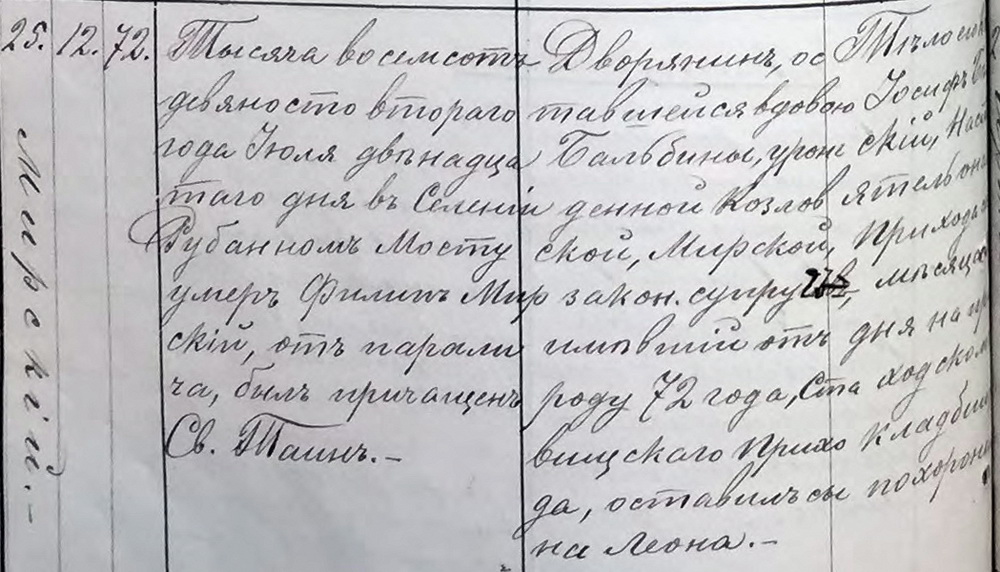 25. 12. 72.
Мирскій.-
Тысяча восемсотъ
девяносто втораго
года Іюля двѣнадца
таго дня въ Селеніи
Рубанномъ Мосту
умеръ Филипъ Мир
скій, отъ парали
ча, былъ причащенъ
Св. Таинъ.-
Дворянинъ, ос
тавшейся вдовою
Бальбины, урож
денной Козлов
ской, Мирской,
закон. супругъ,
имѣвшій отъ
роду 72 года, Ста
вищскаго Прихо
да, оставилъ сы
на Леона.-
Тѣло его
Іосифъ
скій, Наст
ятель
Прихода
мѣсяца
дня на пр
ходском
кладбищ
похорон